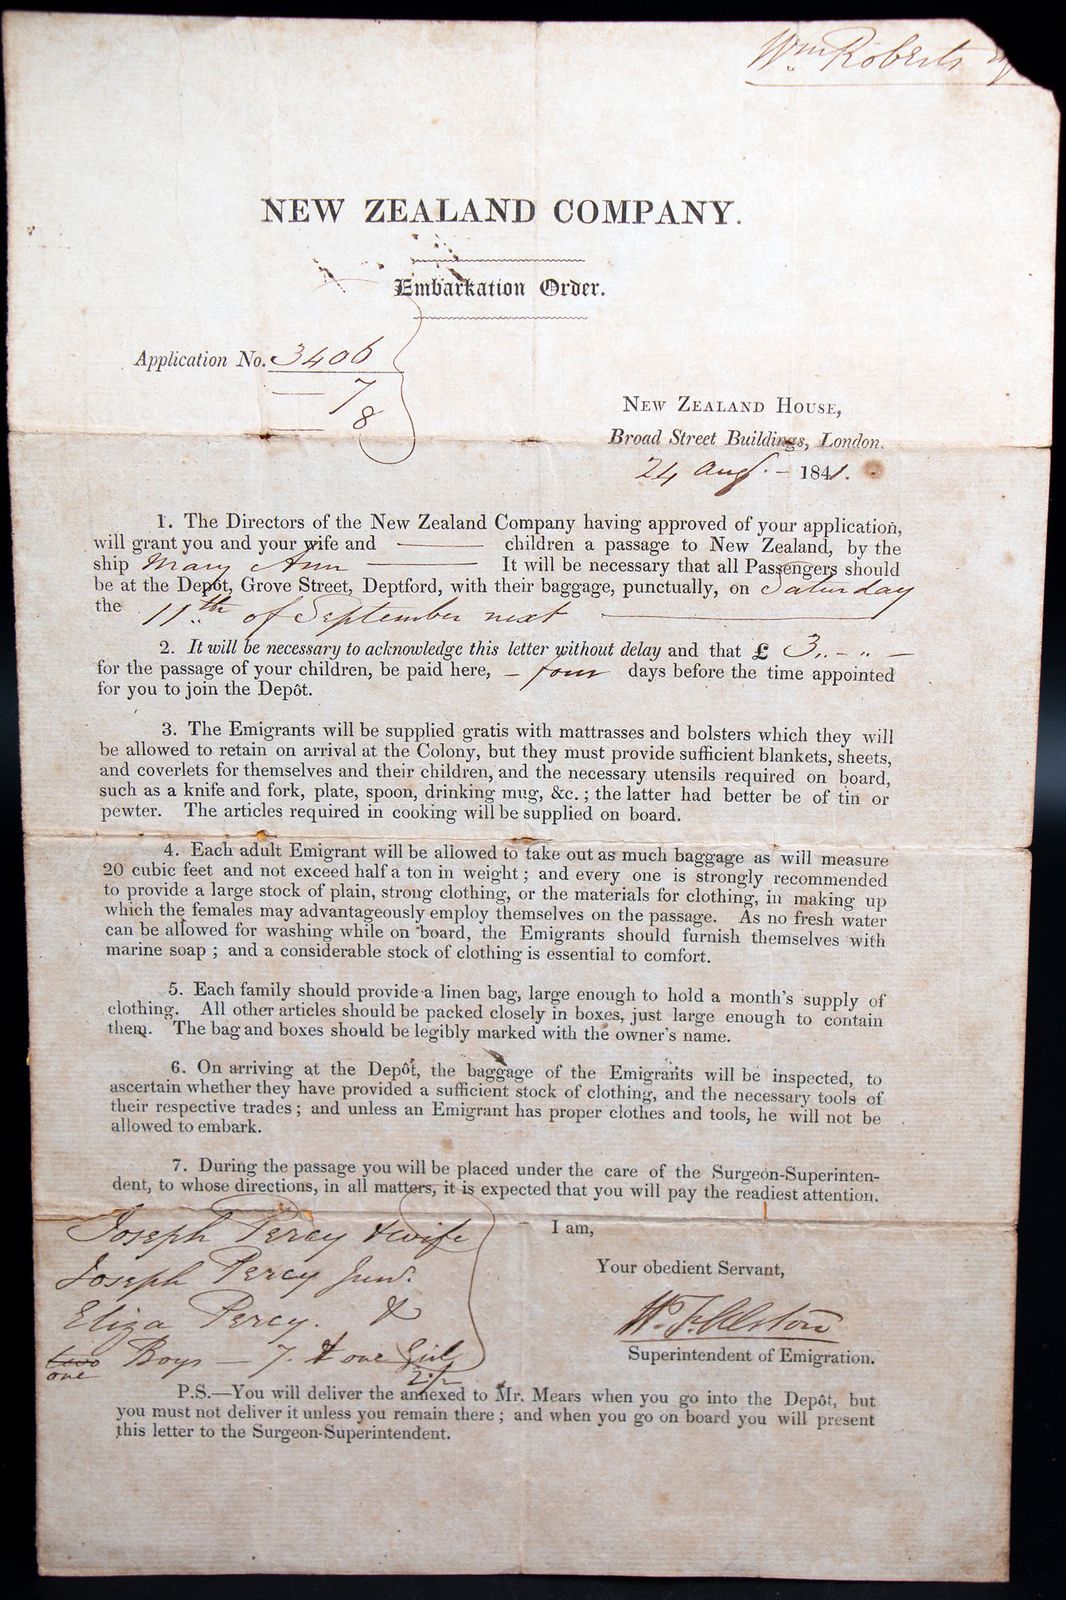 Wm Roberts Esq
NEW ZEALAND COMPANY.
Embarkation Order.
Application No. 3406
7
8
NEW ZEALAND HOUSE,
Broad Street Buildings, London.
24 Augt. - 1841.
1. The Directors of the New Zealand Company having approved of your application,
will grant you and your wife and ——— children a passage to New Zealand, by the
ship Mary Ann ——— It will be necessary that all Passengers should
be at the Depôt, Grove Street, Deptford, with their baggage, punctually, on Saturday
the 11th of September next ———
2. It will be necessary to acknowledge this letter without delay and that £ 3 " - " -
for the passage of your children, be paid here, - four days before the time appointed
for you to join the Depôt.
3. The Emigrants will be supplied gratis with mattrasses and bolsters which they will
be allowed to retain on arrival at the Colony, but they must provide sufficient blankets, sheets,
and coverlets for themselves and their children, and the necessary utensils required on board,
such as a knife and fork, plate, spoon, drinking mug, &c. ; the latter had better be of tin or
pewter. The articles required in cooking will be supplied on board.
4. Each adult Emigrant will be allowed to take out as much baggage as will measure
20 cubic feet and not exceed half a ton in weight ; and every one is strongly recommended
to provide a large stock of plain, strong clothing, or the materials for clothing, in making up
which the females may advantageously employ themselves on the passage. As no fresh water
can be allowed for washing while on board, the Emigrants should furnish themselves with
marine soap ; and a considerable stock of clothing is essential to comfort.
5. Each family should provide a linen bag, large enough to hold a month's supply of
clothing. All other articles should be packed closely in boxes, just large enough to contain
them. The bag and boxes should be legibly marked with the owner's name.
6. On arriving at the Depôt, the baggage of the Emigrants will be inspected, to
ascertain whether they have provided a sufficient stock of clothing, and the necessary tools of
their respective trades ; and unless an Emigrant has proper clothes and tools, he will not be
allowed to embark.
7. During the passage you will be placed under the care of the Surgeon-Superinten-
dent, to whose directions, in all matters, it is expected that you will pay the readiest attention.
Joseph Percy & wife
Joseph Percy Junr.
Eliza Percy. &
two Boys — 7. & one Girl
one 2½
I am,
Your obedient Servant,
Superintendent of Emigration.
P.S.—You will deliver the annexed to Mr. Mears when you go into the Depôt, but
you must not deliver it unless you remain there ; and when you go on board you will present
this letter to the Surgeon-Superintendent.